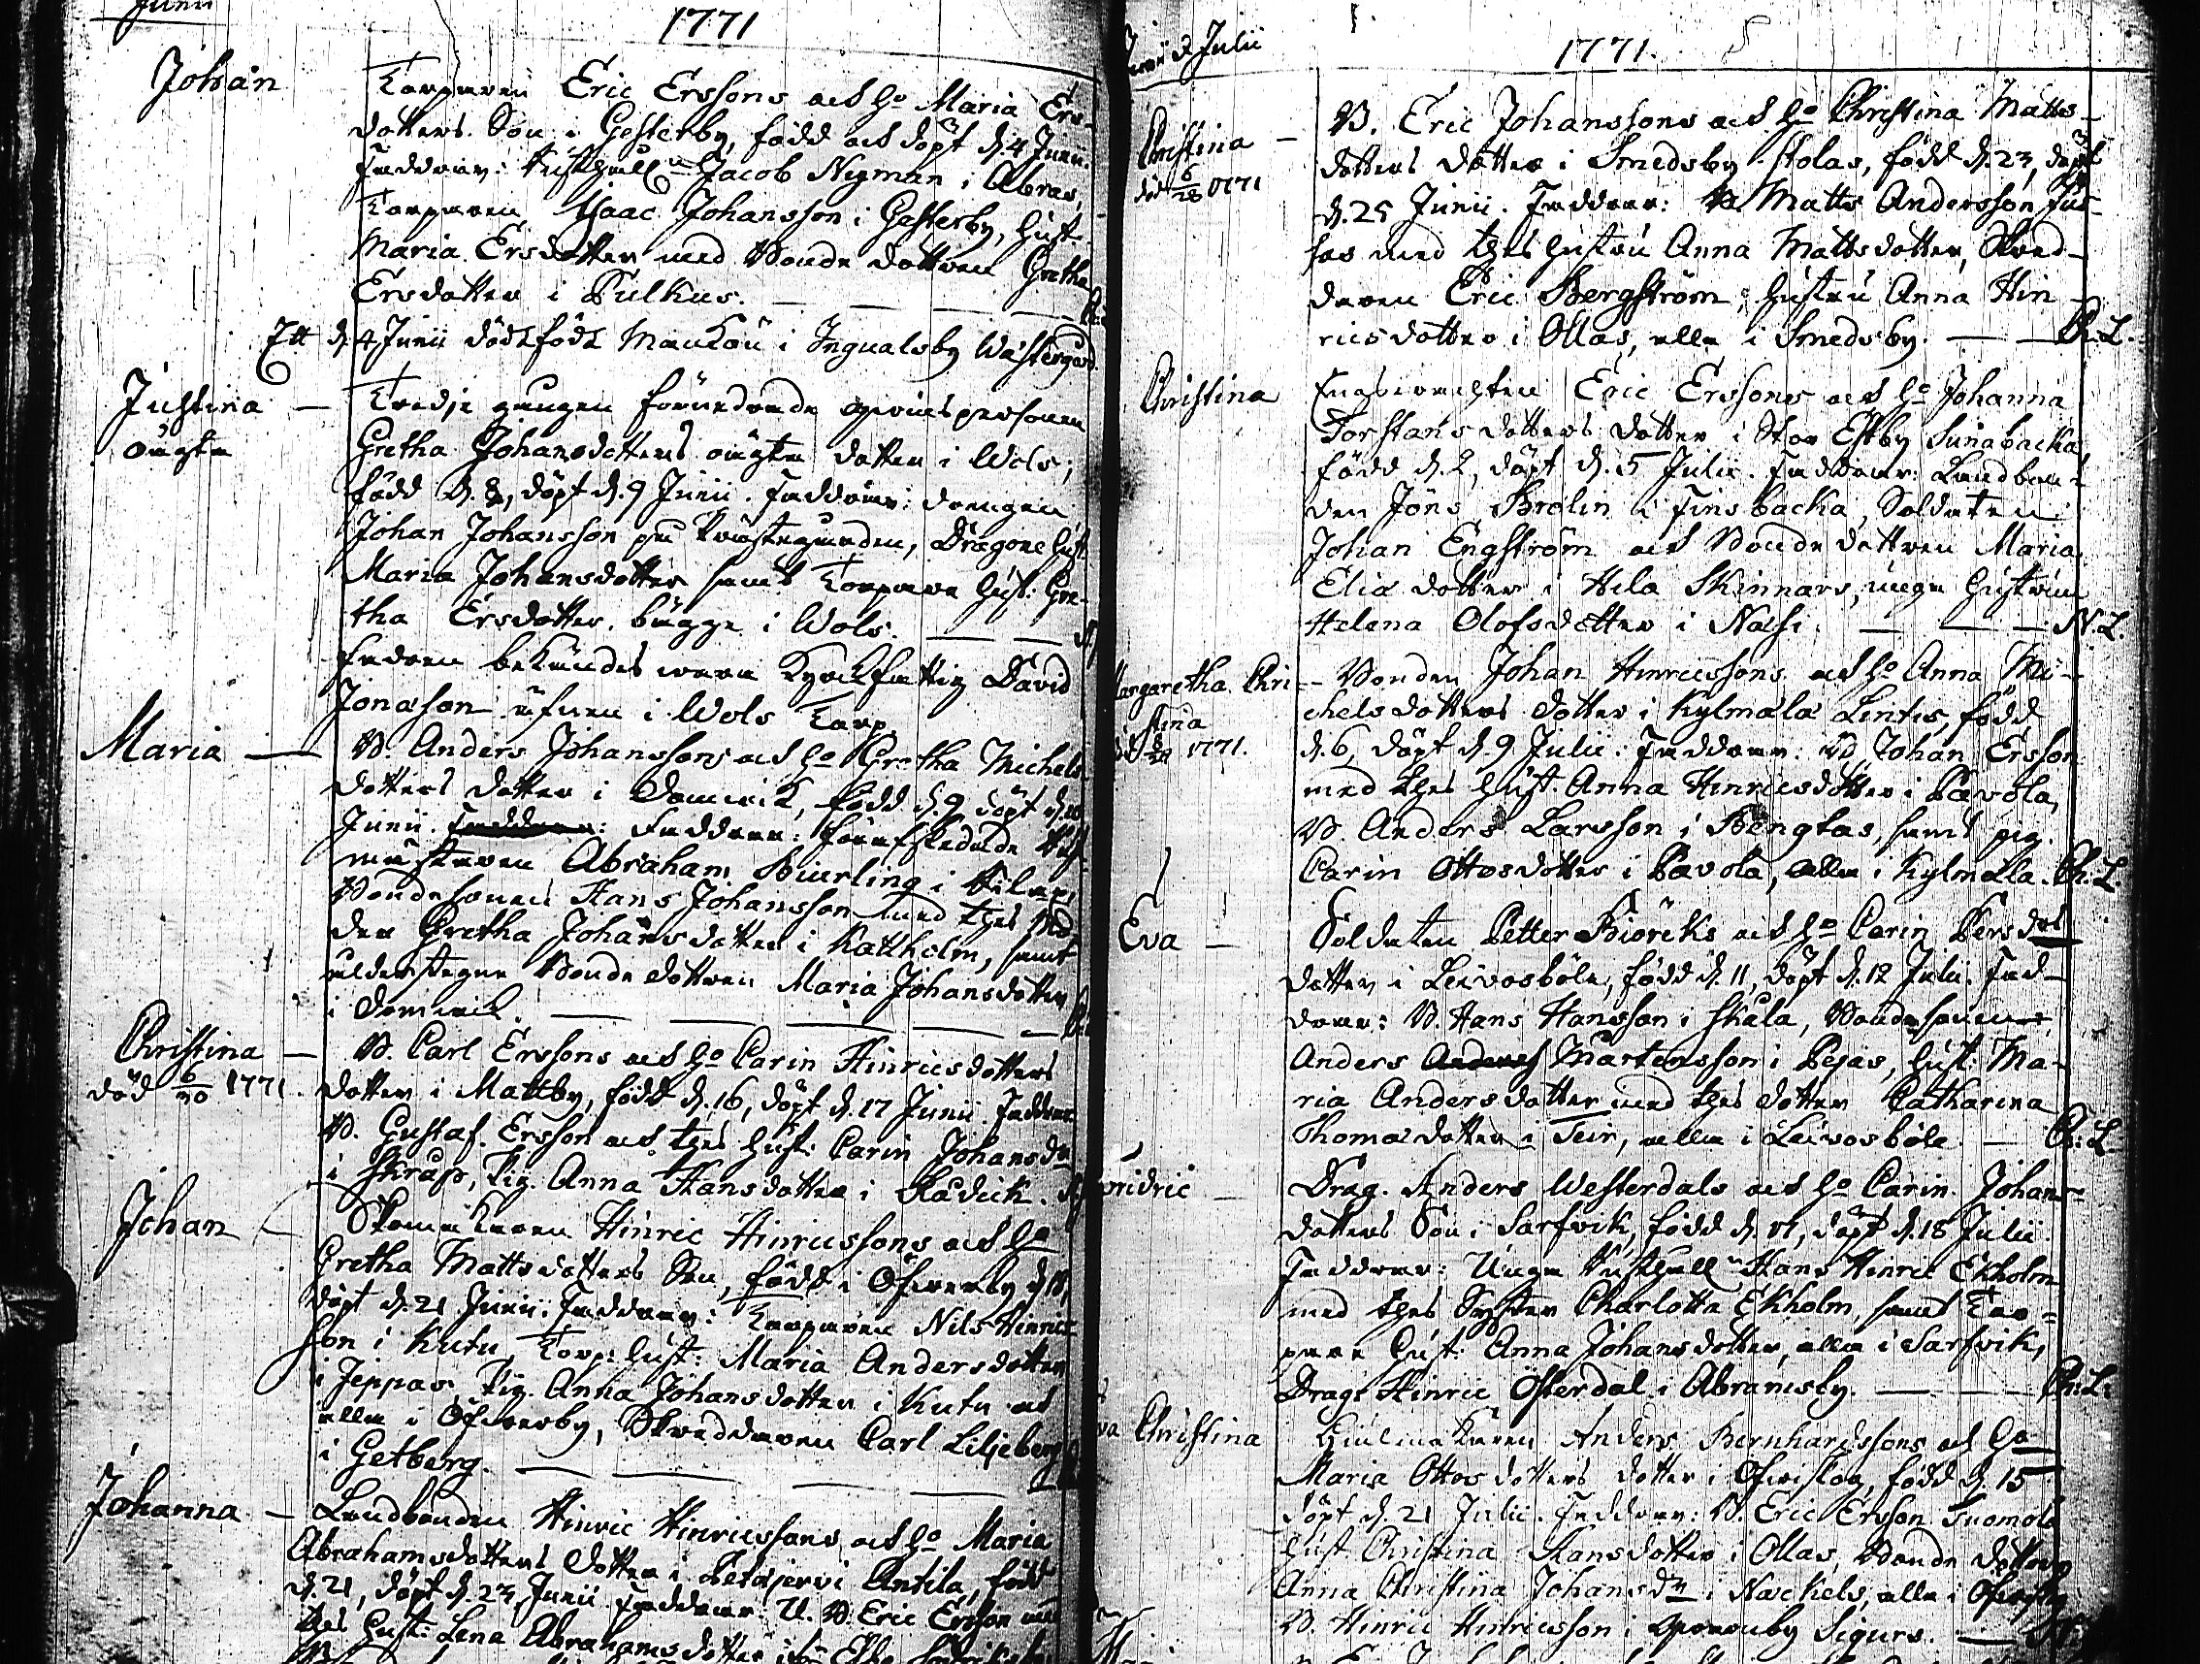 Junii
1771
Johan
Torparen Eric Erssons och H:o Maria Ers-
dotters Son i Gesterby, född och döpt d. 4 Junii.
Faddrar: Rusthåll:n Jacob Nyman i Abras,
Torparen Isaac Johansson i Gesterby, Hust.
Maria Ersdotter med Bonde dottren Gretha
Ersdotter i Pulkus.
Itt d. 4 Junii dödsfödt Mankön i Ingvalsby Wästergård
Justina
oägta
Tredje gången förnedrade qvinspersonen
Gretha Johansdotters oägta dotter i Wols,
född d. 8, döpt d. 9 Junii. Faddrar: drengen
Johan Johansson på Prästegården, Dragone Hust.
Maria Johansdotter samt Torpare Hust: Gre-
tha Ersdotter, bägge i Wols.
Fadren bekändes wara David
Jonasson äfven i Wols Torp
Maria
B. Anders Johanssons och H:o Gretha Michels-
dotters dotter i Damwik, född d. 9 döpt d. 10
Junii. Faddrar: Faddrar: förafskedade
mästaren Abraham Biurling i
Bondesonen Hans Johansson med thes Mo-
der Gretha Johansdotter i Kattholm, samt
ålderstegne Bonde dottren Maria Johansdotter
i Damwik.
Christina
död 6/20 1771.
B. Carl Erssons och H:o Carin Hinricsdotters
dotter i Mattby, född d. 16, döpt d. 17 Junii. Faddrar
B. Gustaf Ersson och thes Hust: Carin Johansd:r
i Skrap, Pig. Anna Hansdotter i Rådick.
Johan
Skomakaren Hinric Hinricssons och H:o
Gretha Mattsdotters Son, född i Öfwerby d. 18,
döpt d. 21 Junii. Faddrar: Torparen Nils Hinrics-
son i Kutu, Torp: Hust: Maria Andersdotter
i Jeppas, Pig. Anna Johansdotter i Kutu och
alla i Öfwerby, Skreddaren Carl Liljeberg
i Getberg.
Johanna
Landbonden Hinric Hinricssons och H:o Maria
Abrahamsdotters dotter i Petäjervi Antila, född
d. 21, döpt d. 23 Junii. Faddrar: U. B. Eric Ersson med
thes Hust: Lena Abrahamsdotter i
Junii & Julii
1771.
Christina
död 6/28 1771
B. Eric Johanssons och H:o Christina Matts-
dotters dotter i Smedsby Stolas, född d. 23, döpt
d. 25 Junii. Faddrar: B. Matts Andersson
med thes hustru Anna Mattsdotter, Skred-
daren Eric Bergström, hustru Anna Hin-
ricsdotter i Ollas, alla i Smedsby. Ch. L.
Christina
Eric Erssons och H:o Johanna
Torstansdotters dotter i Stor Esby Sunabacka
född d. 2, döpt d. 5 Julii. Faddrar: Landbon-
den Jöns Brolin i Finsbacka, Soldaten
Johan Engström och Bonde dottren Maria
Elia dotter i Hila Skinnars, unga hustrun
Helena Olofsdotter i Näsi. N. L.
Margaretha Chri-
stina
Bonden Johan Hinricssons och H:o Anna Mi-
chelsdotters dotter i Kylmälä Lintis, född
d. 6, döpt d. 9 Julii: Faddrar: Bd. Johan Ersson
med thes Hust. Anna Hinricsdotter i Pavola,
B. Anders Larsson i Bengtas, samt pig.
Carin Ottosdotter i Pavola, alla i Kylmälla. Ch. L.
Eva
Soldaten Petter Biörcks och H:o Carin Persdot
dotter i Leivosböle, född d. 11, döpt d. 12 Julii. Fad-
drar: B. Hans Hansson i Skåla, Bondesonen
Anders Anders Mårtensson i Pejas, Hust. Ma-
ria Andersdotter med thes dotter Catharina
Thomædotter i Teir, alla i Leivosböle Ch. L.
Fridric
Drag. Anders Westerdals och H:o Carin Johans-
dotters Son i Sarfvik, född d. 16, döpt d. 18 Julii.
Faddrar: Unga Rusthåll:n Hans Hinric Ekholm
med thes Syster Charlotta Ekholm, samt Tor-
pare Hust: Anna Johansdotter, alla i Sarfvik,
Drag: Hinric Österdal i Abramsby. Ch. L.
Eva Christina
Hiulmakaren Anders Bernhardssons och H:o
Maria Ottosdotters dotter i Öfwitskog, född d. 15
döpt d. 21 Julii. Faddrar: B. Eric Ersson Tuomola
Hust. Christina Hansdotter i Ollas, Bonde dottren
Anna Christina Johansd:r i Nackels, alla i Öfwitskog
B. Hinric Hinricsson i Qvarnby Sigurs.